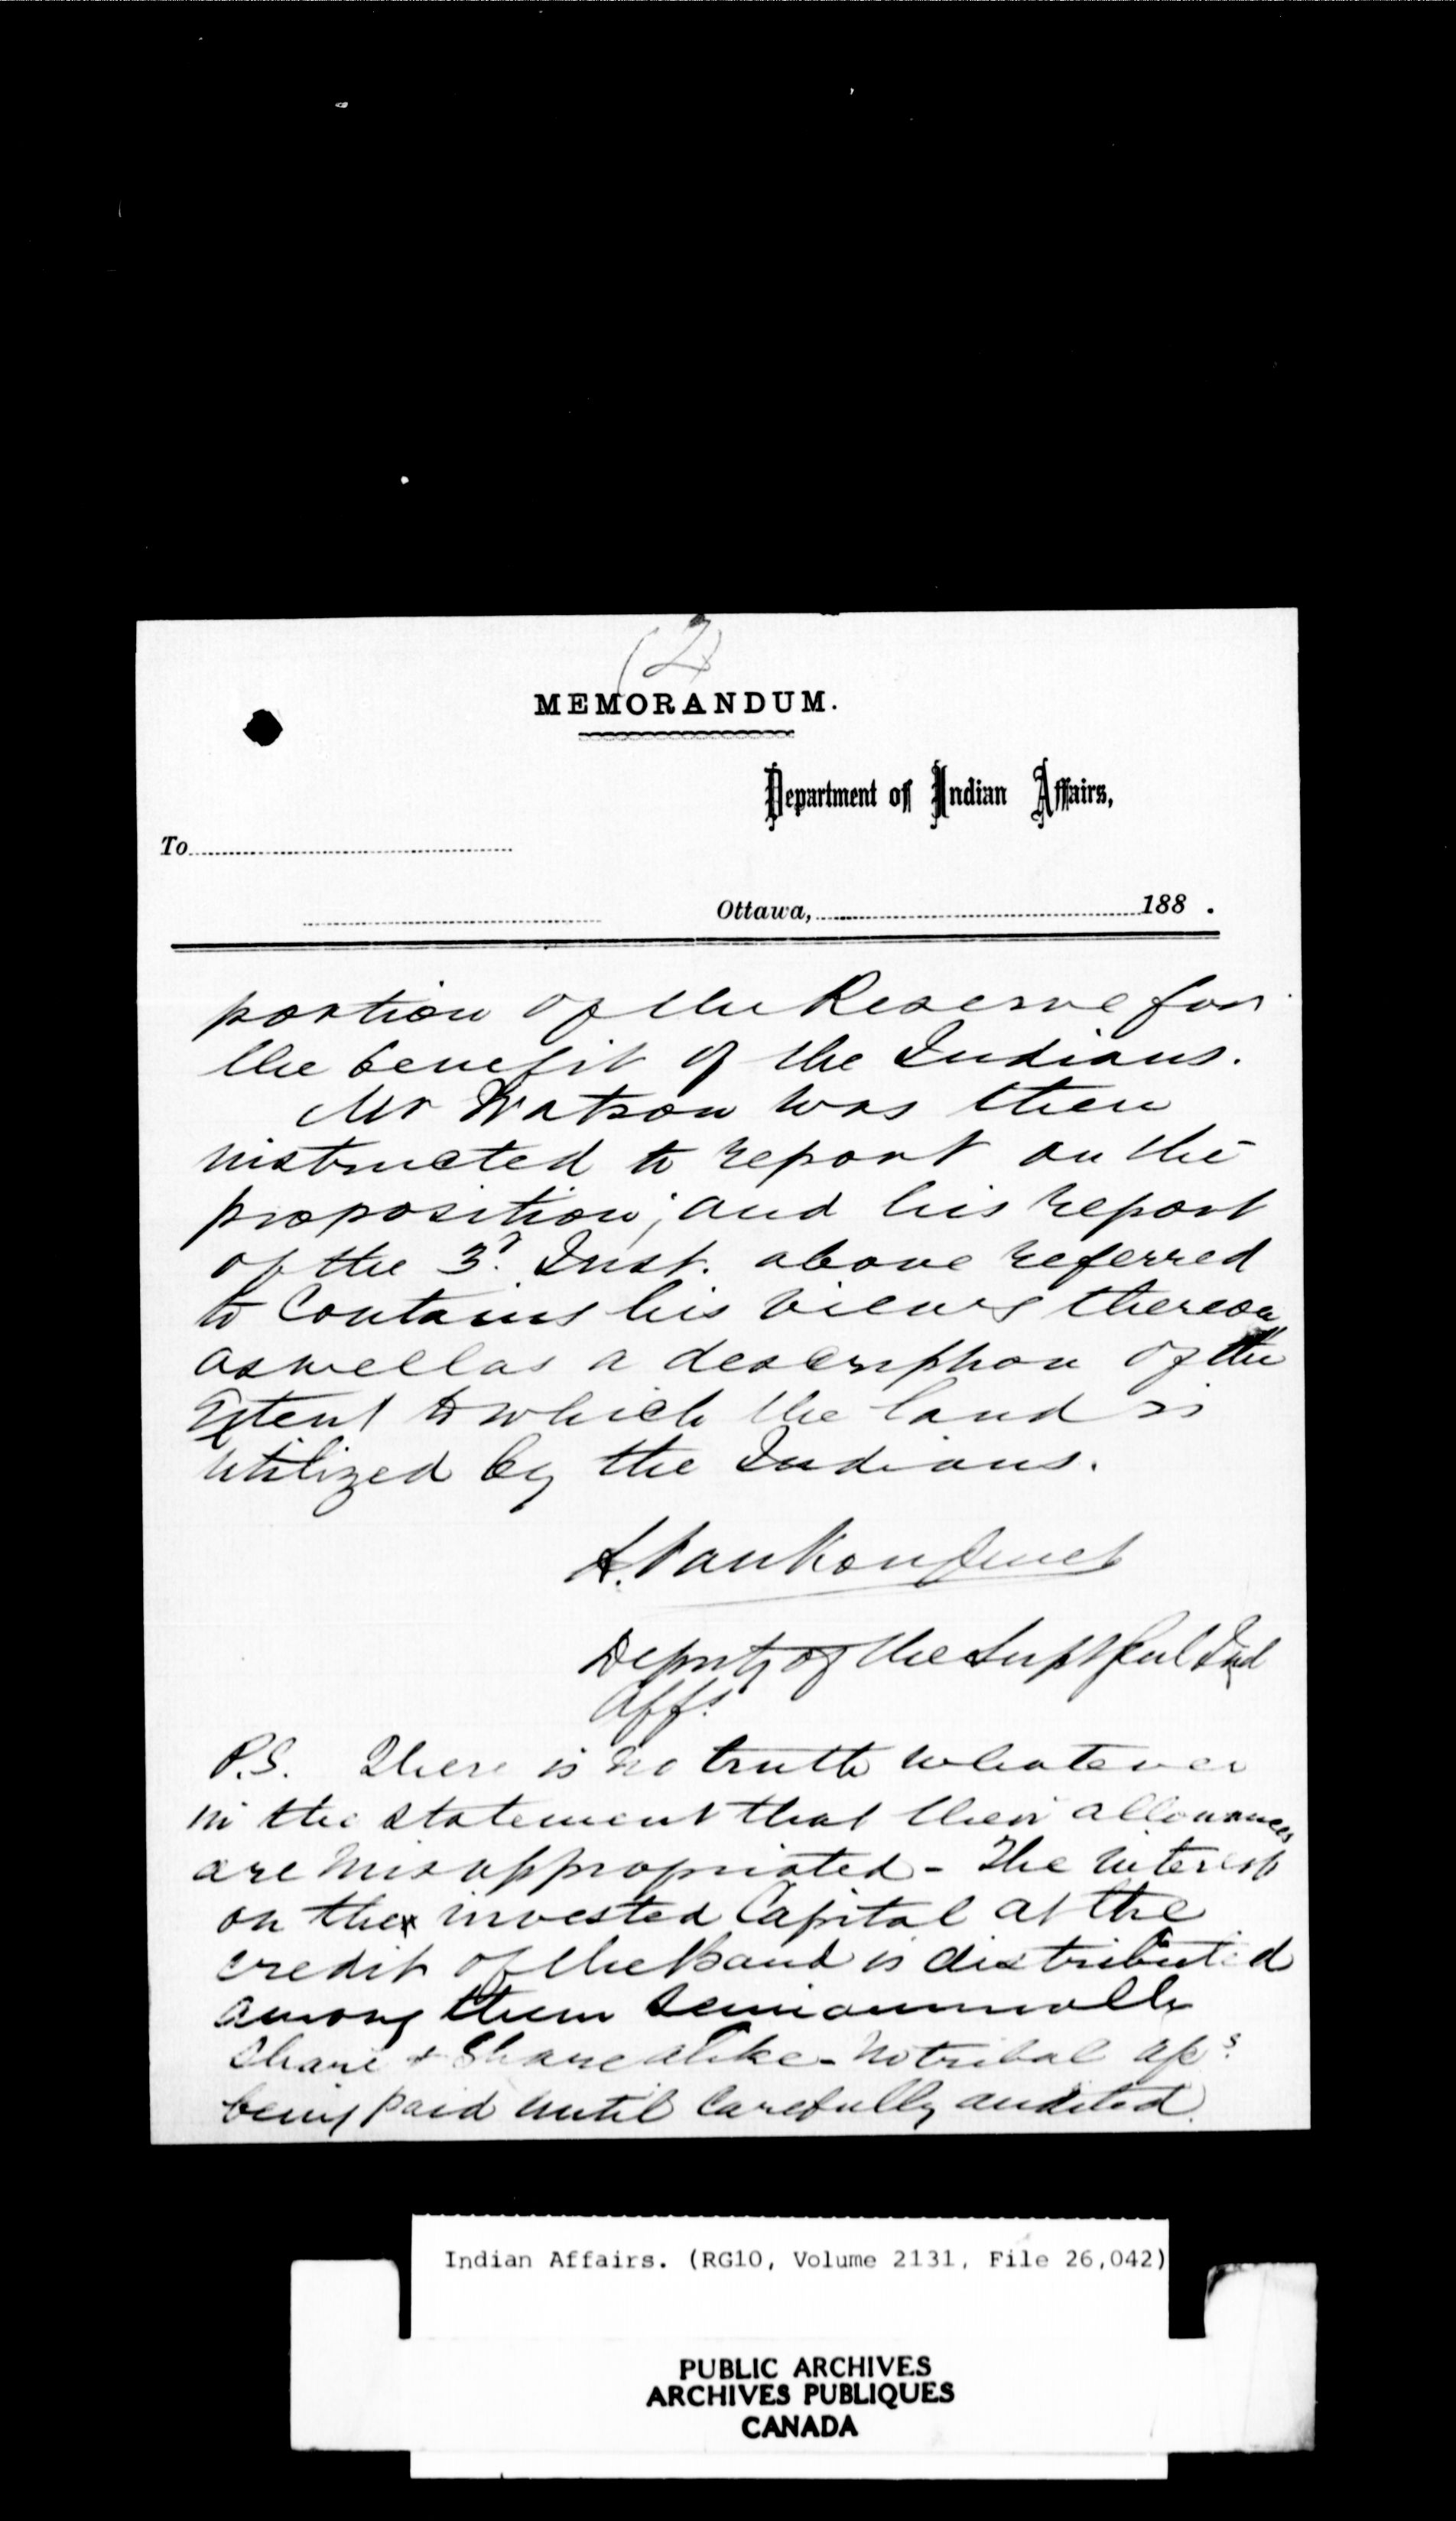 (2)
MEMORANDUM.
Department of Indian Affairs,
To
Ottawa, 188 .
portion of the Reserve for
the benefit of the Indians.
Mr Watson was then
instructed to report on the
proposition; and his report
of the 3d. Inst. above referred
to Contains his views thereon
as well as a description of the
extent to which the land is
utilized by the Indians.
L. VanKoughnet
Deputy of the Supt Genl Ind
Affs
P.S. There is no truth whatever
in the statement that their allowances
are misappropriated - The interest
on the invested Capital at the
credit of the Band is distributed
among them semiannually
Share & Share alike - No tribal
being paid until carefully audited.
Indian Affairs. (RG10, Volume 2131, File 26,042)
PUBLIC ARCHIVES
ARCHIVES PUBLIQUES
CANADA